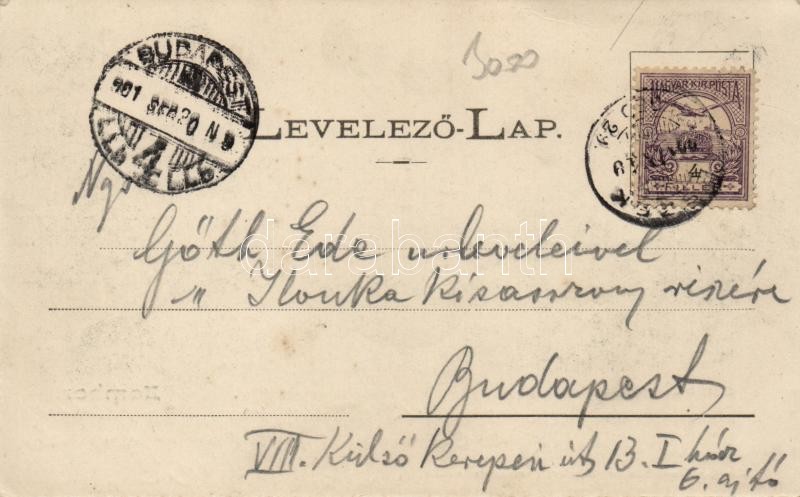 3000
BUDAPEST
901 SEP 20 N 9
4
MAGYAR KIR. POSTA
4
FILLÉR
LEVELEZŐ-LAP.
Ngs
Góth Ede úr leveleivel
" Ilonka kisasszony részére
darabanth
Budapest
VIII. Külső Kerepesi út 13. I. ház
6. ajtó